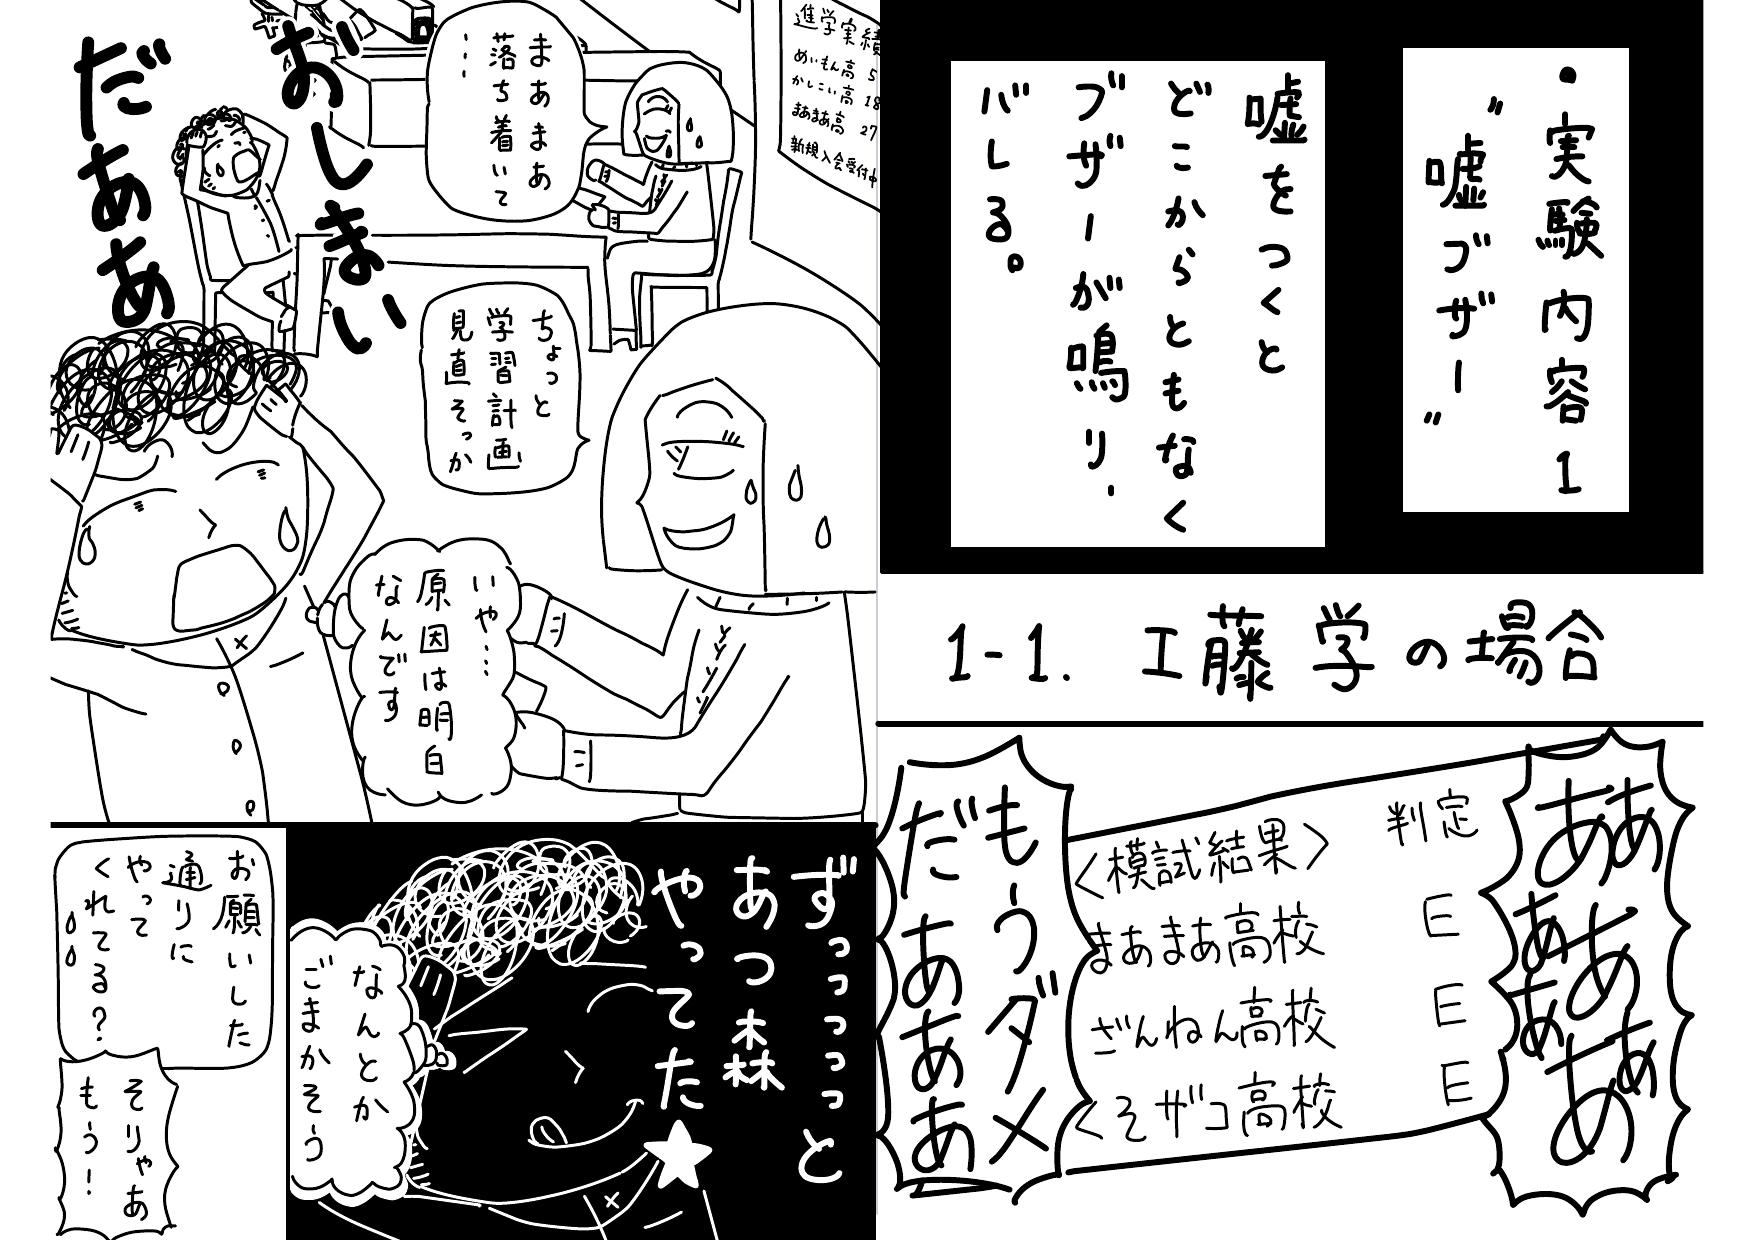 ・実験内容1
"嘘ブザー"
嘘をつくと
どこからともなく
ブザーが鳴り、
バレる。
1-1. 工藤 学の場合
ああああああああ
〈模試結果〉 判定
まあまあ高校 E
ざんねん高校 E
くそザコ高校 E
もぅダメ
だあああ
進学実績
めいもん高 5
かしこい高 18
まあまあ高 27
新規入会受付中
まあまあ
落ち着いて
…
おしまい
だああ
ちょっと
学習計画
見直そっか
いや…
原因は明白
なんです
ずっっっっっと
あつ森
やってた★
なんとか
ごまかそう
お願いした
通りに
やって
くれてる?
そりゃあ
もう!